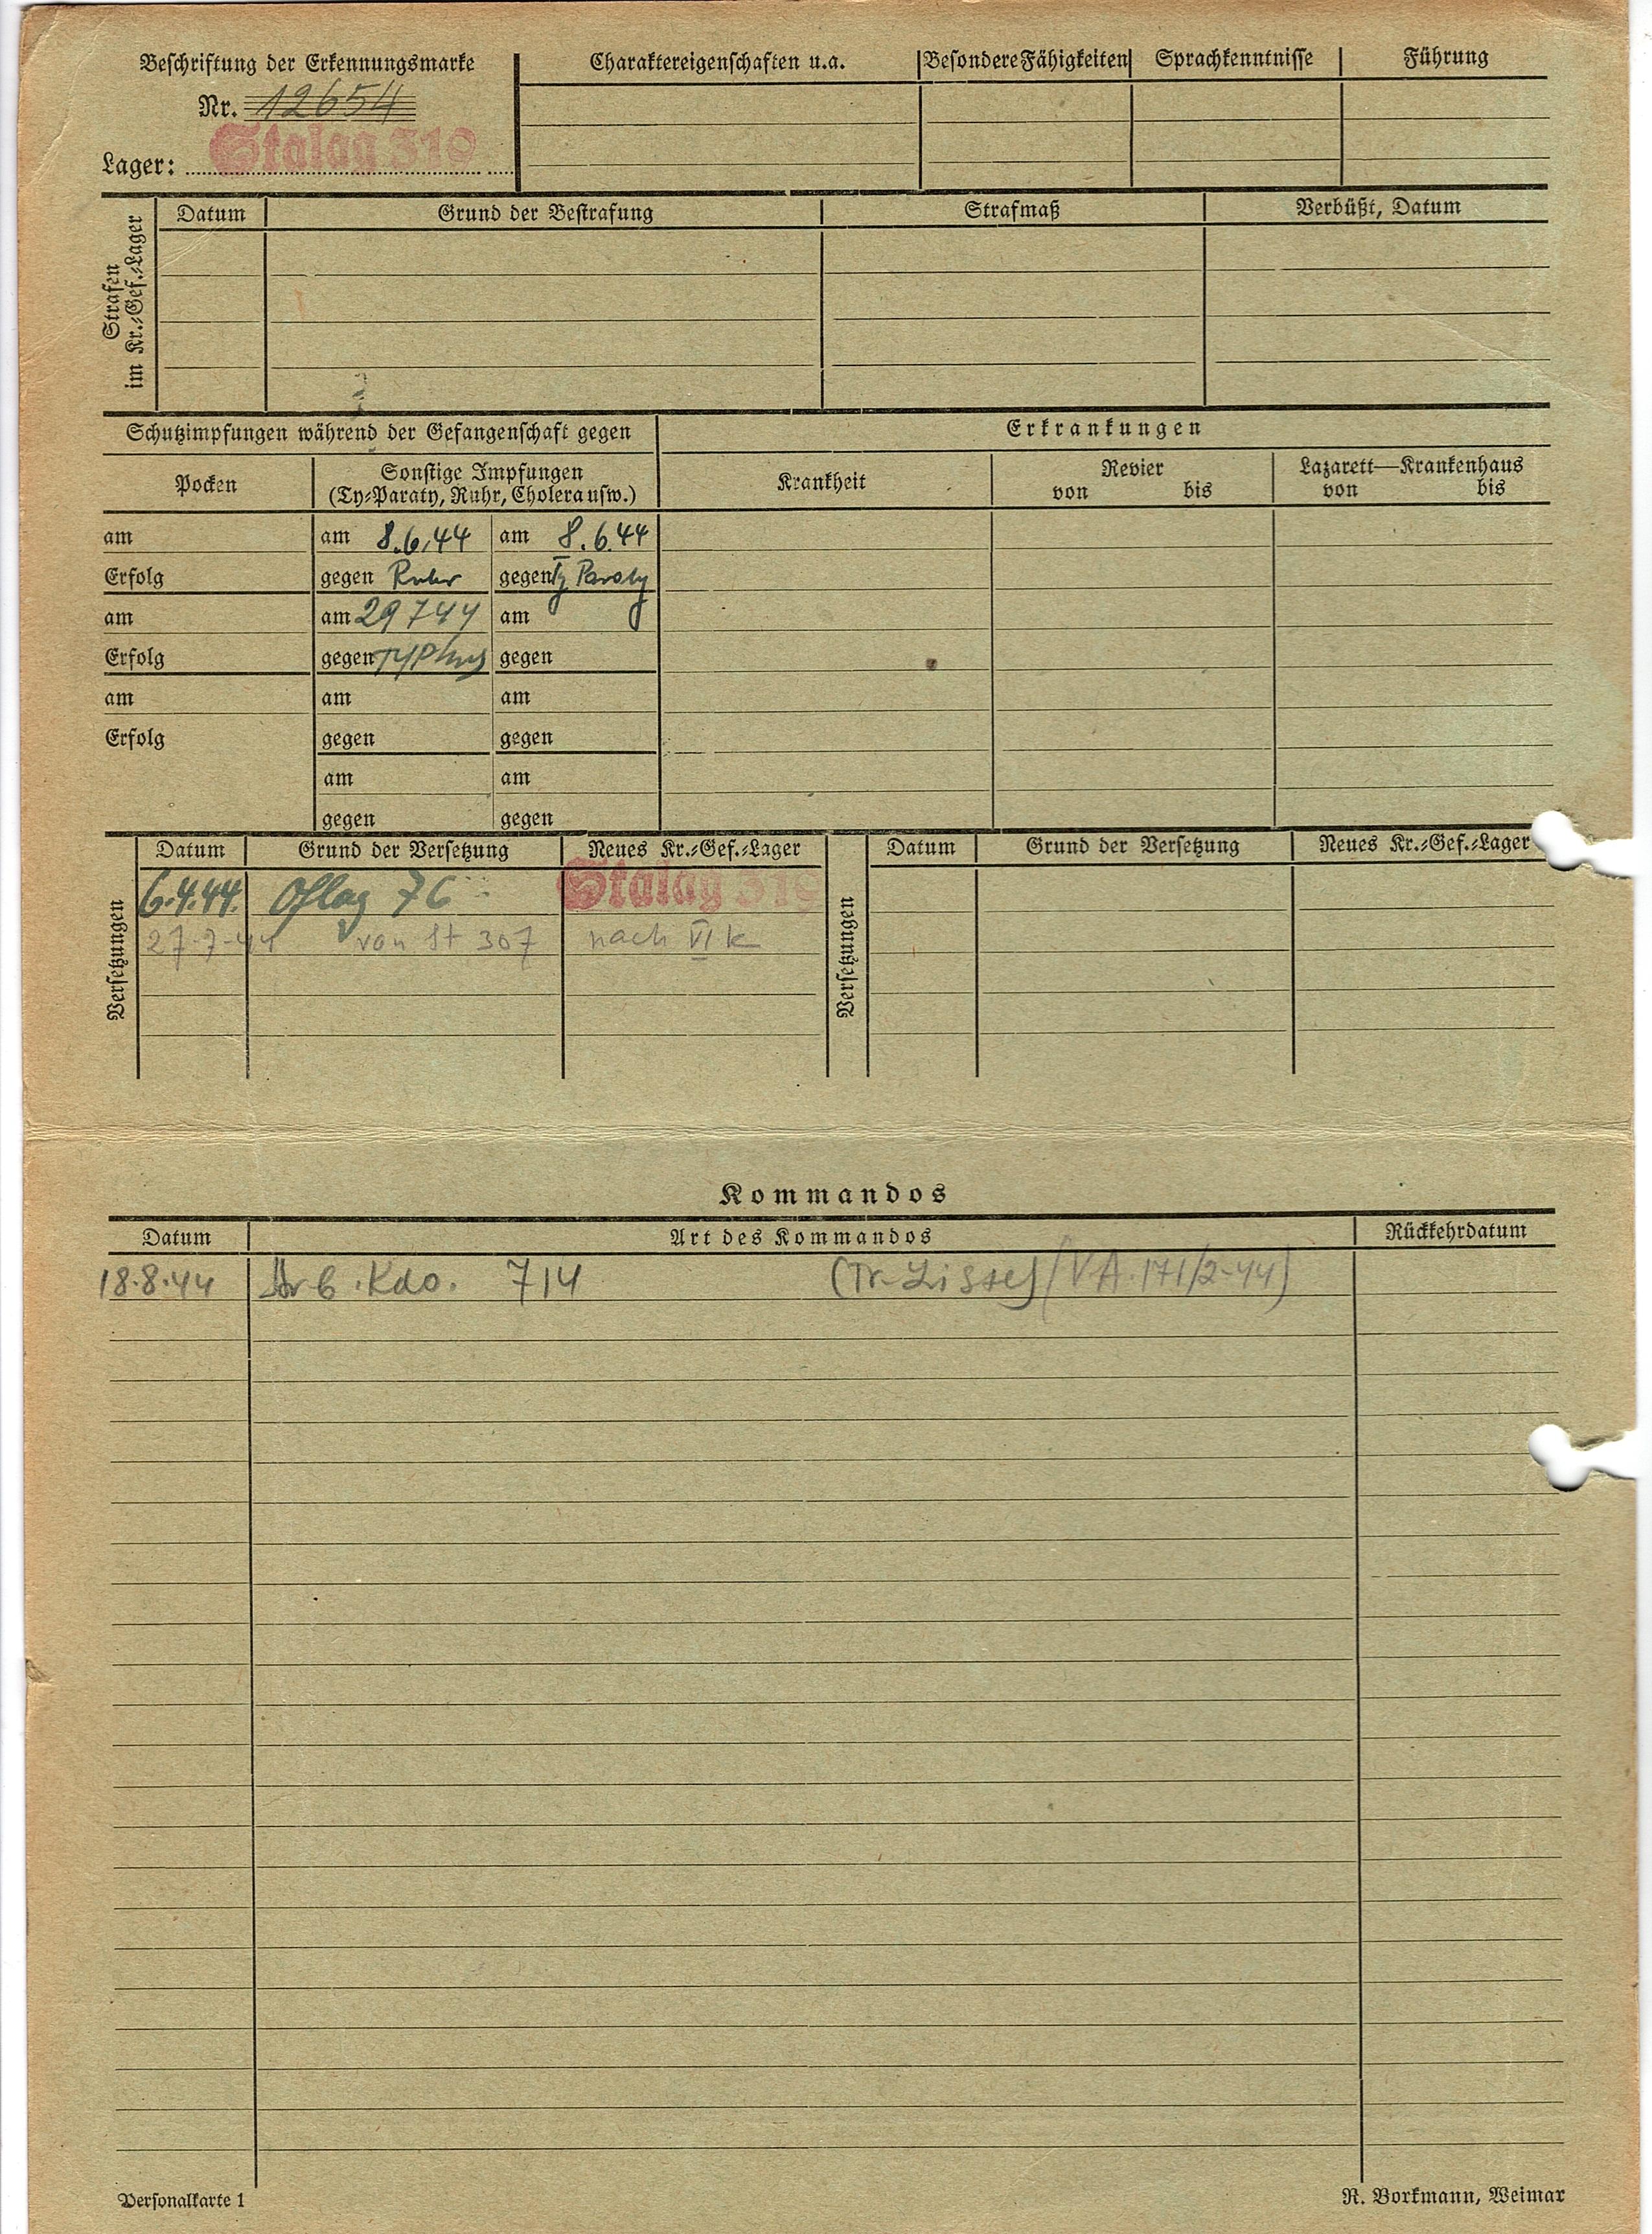 Beschriftung der Erkennungsmarke
Nr. 12654
Lager: Stalag 319
Charaktereigenschaften u.a. Besondere Fähigkeiten Sprachkenntnisse Führung
Strafen im Kr.-Gef.-Lager
Datum Grund der Bestrafung Strafmaß Verbüßt, Datum
Schutzimpfungen während der Gefangenschaft gegen
Erkrankungen
Pocken
Sonstige Impfungen
(Ty-Paraty, Ruhr, Cholera usw.)
Krankheit
Revier
von bis
Lazarett—Krankenhaus
von bis
am am 8.6.44 am 8.6.44
Erfolg gegen Ruhr gegen Ty Paraty
am am 29 7 44 am
Erfolg gegen Typhus gegen
am am am
Erfolg gegen gegen
am am
gegen gegen
Versetzungen
Datum Grund der Versetzung Neues Kr.-Gef.-Lager
6.4.44. Oflag 76 Stalag 319
27-7-44 von St 307 nach VI K
Versetzungen
Datum Grund der Versetzung Neues Kr.-Gef.-Lager
Kommandos
Datum Art des Kommandos Rückkehrdatum
18.8.44 Arb. Kdo. 714 (VA. 171/2-44)
Personalkarte 1
R. Borkmann, Weimar